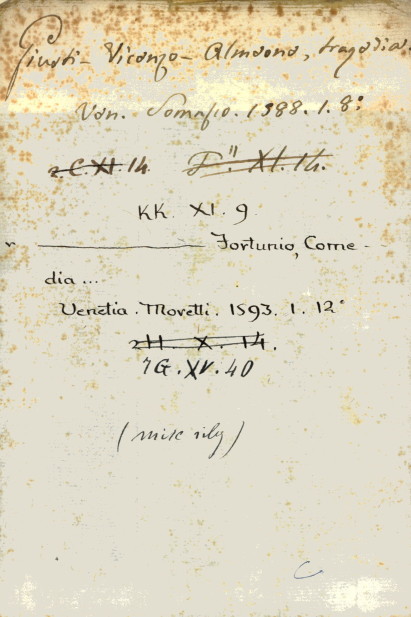 Giusti - Vicenzo - Almeona, tragedia.
Ven. Somasco. 1588. 1. 8°
2 C. XI. 14 F" . XI. 14.
KK. XI. 9
Fortunio, Come-
dia ...
Venetia . Moretti . 1593. 1. 12°
2 H . X . 14.
7G . XV . 40